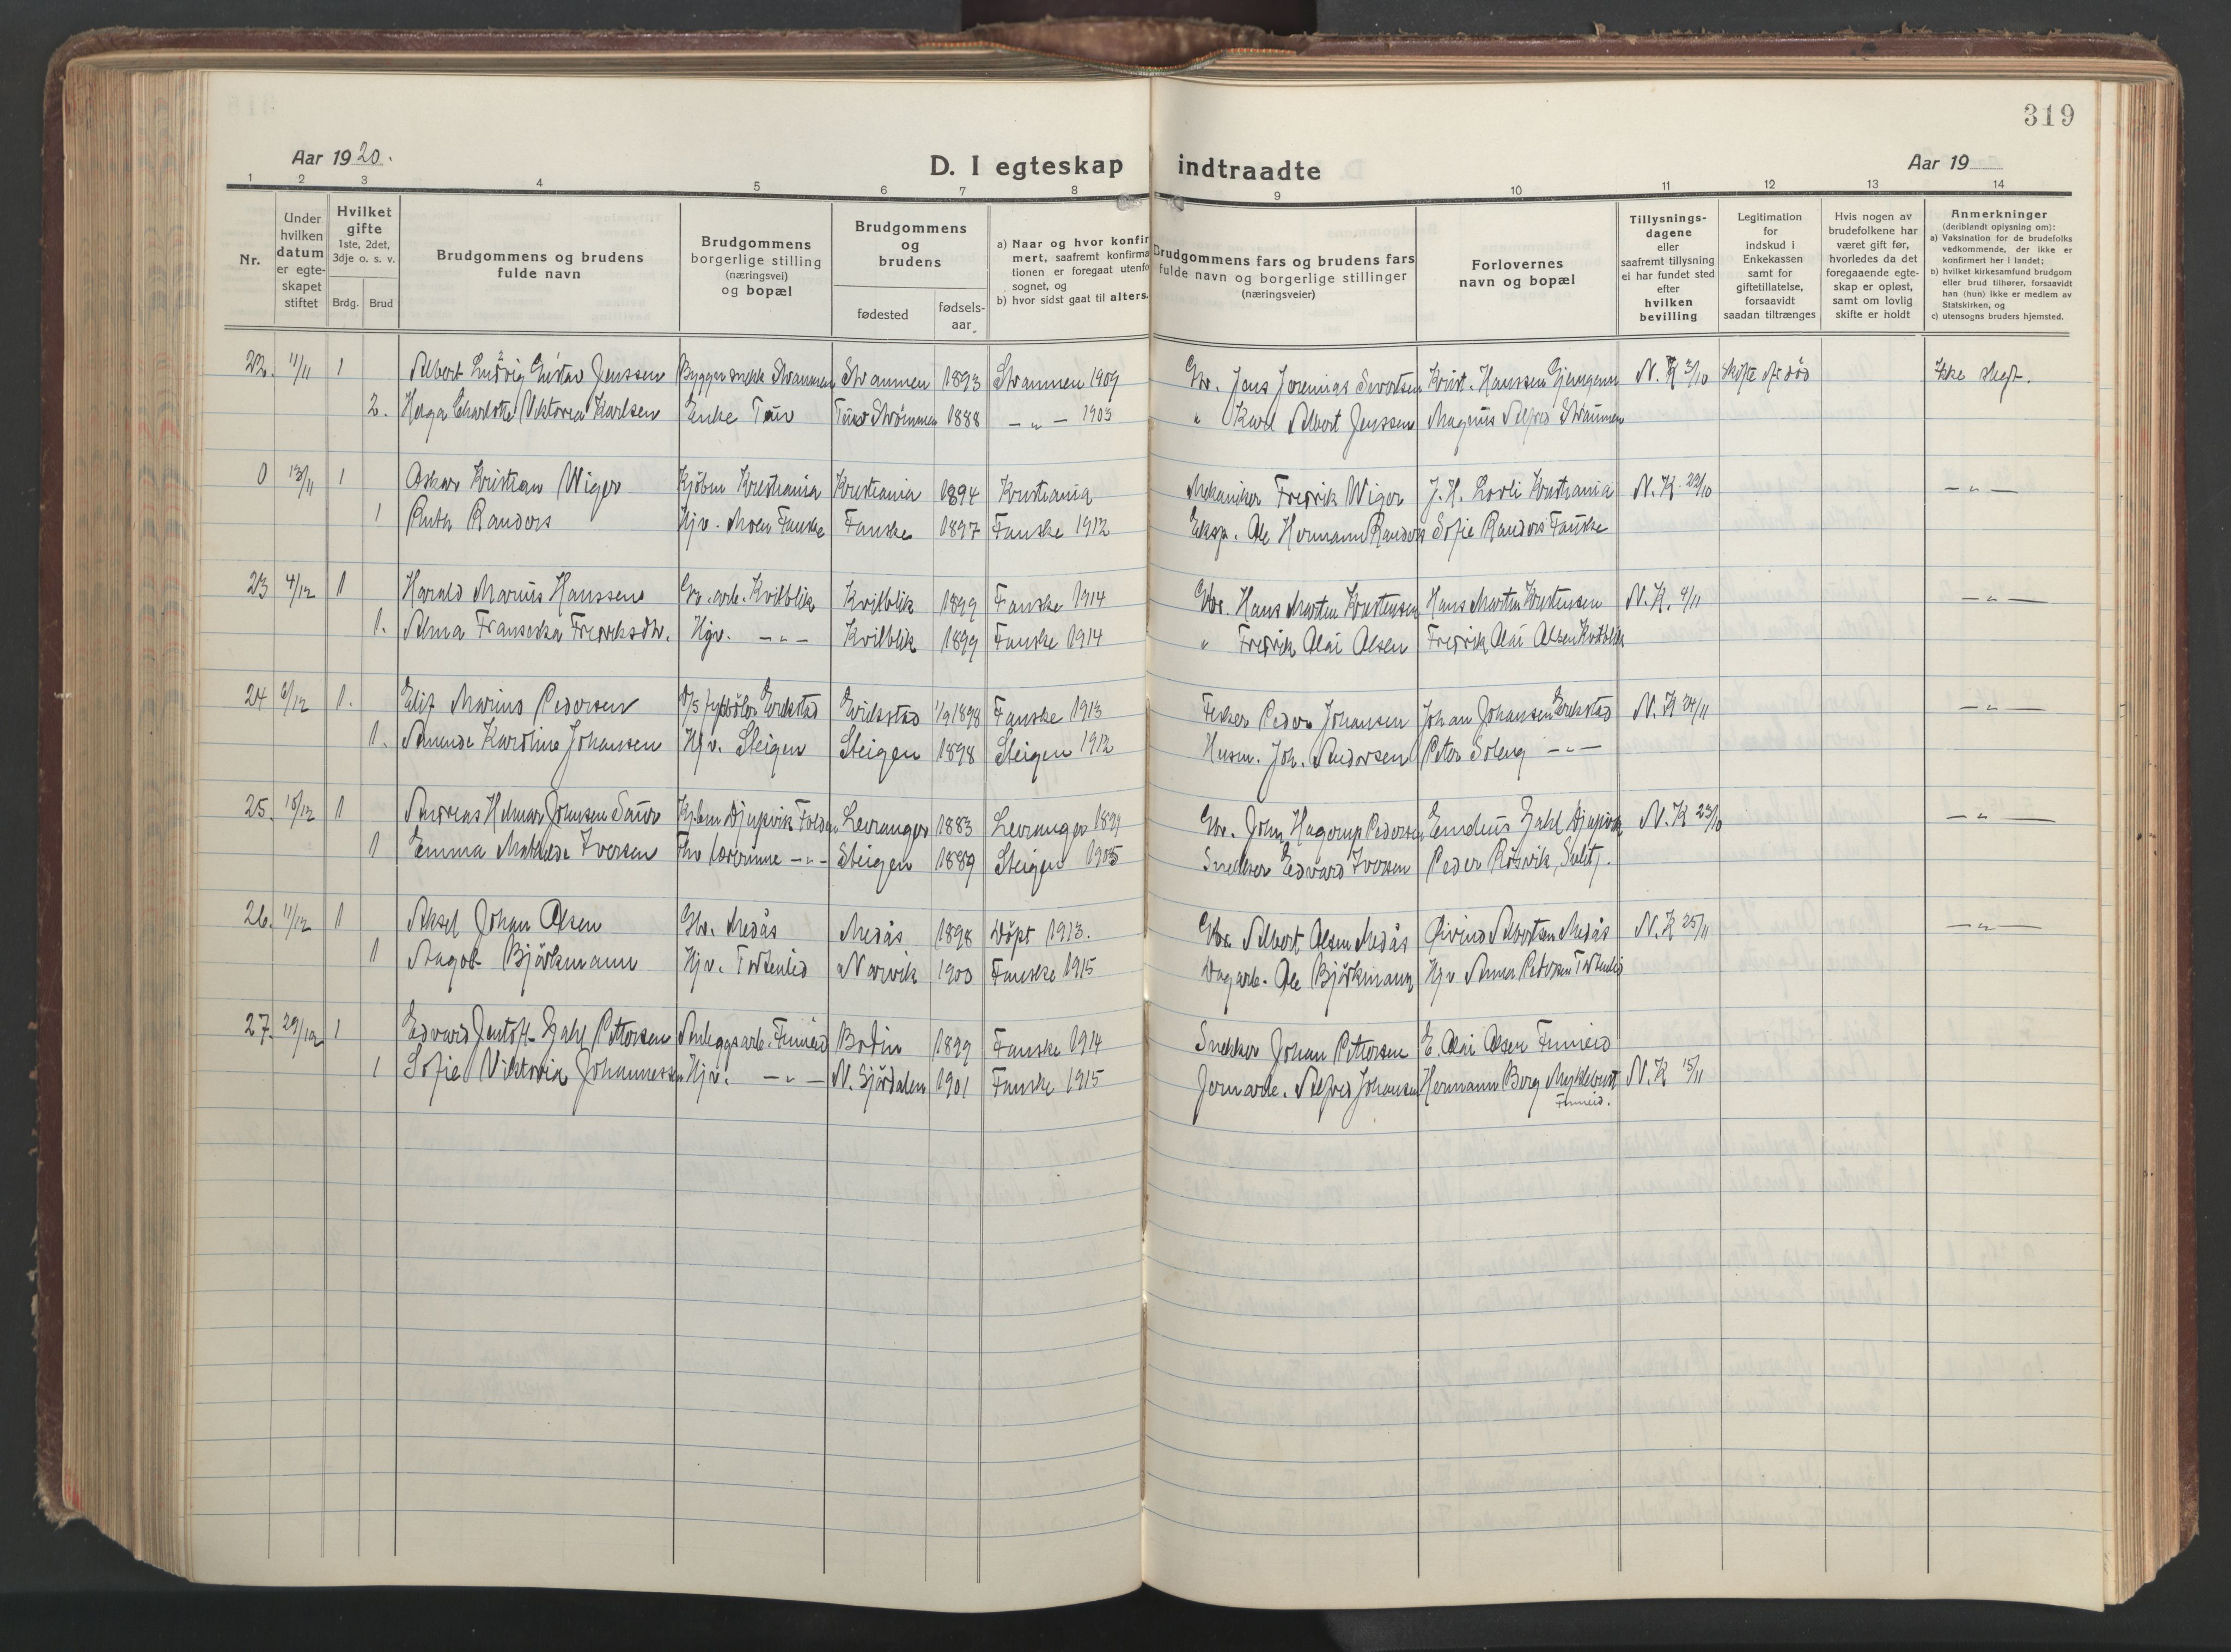 319
Aar 1920.
D. I egteskap indtraadte
Aar 19
1 2 3 4 5 6 7 8 9 10 11 12 13 14
Nr.
Under hvilken datum er egteskapet stiftet
Hvilket gifte 1ste, 2det, 3dje o. s. v.
Brdg. Brud
Brudgommens og brudens fulde navn
Brudgommens borgerlige stilling (næringsvei) og bopæl
Brudgommens og brudens
fødested
fødsels-aar
a) Naar og hvor konfirmert, saafremt konfirmationen er foregaat utenfo sognet, og
b) hvor sidst gaat til alters.
Brudgommens fars og brudens fars fulde navn og borgerlige stillinger (næringsveier)
Forlovernes navn og bopæl
Tillysnings-dagene eller saafremt tillysning ei har fundet sted efter hvilken bevilling
Legitimation for indskud i Enkekassen samt for giftetillatelse, forsaavidt saadan tiltrænges
Hvis nogen av brudefolkene har været gift før, hvorledes da det foregaaende egteskap er opløst, samt om lovlig skifte er holdt
Anmerkninger (deriblandt oplysning om):
a) Vaksination for de brudefolks vedkommende, der ikke er konfirmert her i landet;
b) hvilket kirkesamfund brudgom eller brud tilhører, forsaavidt han (hun) ikke er medlem av Statskirken, og
c) utensogns bruders hjemsted.
22. 11/11 1 Albert Ludvig Gustav Jenssen Straumen 1893 Straumen 1909 Gbr. Jens Jeremias Sivertsen Krist. Hanssen N. K 3/10 Skifte Ikke slegt.
2. Helga Charlotte Viktoria Karlsen Enke 1888 — " — 1903 " Karl Albert Jenssen Magnus Alfred Straumen
0 13/11 1 Oskar Kristian Wiger Kjöbm Kristiania Kristiania 1894 Kristiania Mekaniker Fredrik Wiger J. H. Kristiania N. K. 22/10 — " —
1 Ruth Randers Hjv. Moen Fauske Fauske 1897 Fauske 1912 Eksp. Ole Hermann Randers Sofie Randers Fauske
23 4/12 1 Harald Marius Hanssen Gr. arb. Kvilblik Kvilblik 1899 Fauske 1914 Gbr. Hans Martin Kristensen Hans Martin Kristensen N. K. 4/11 — " —
1. Alma Franseska Fredriksdtr. Hjv. — " — Kvilblik 1899 Fauske 1914 " Fredrik Olai Olsen Fredrik Olai Olsen Kvilblik
24 6/12 1. Elif Marius Pedersen Erikstad Erikstad 1/9 1898 Fauske 1913 Fisker Peder Johansen Johan Johansen Erikstad N. K 24/11 — " —
1. Amunde Karoline Johansen Hjv. Steigen Steigen 1898 Steigen 1912 Husm. Joh. Andersen Peter Soleng — " —
25. 10/12 1 Andreas Helmar Johnsen Kjöbm Djupvik Folden Levanger 1883 Levanger 1899 Gbr. John Hagerup Pedersen Emelius Zahl Djupvik N. K 23/10 — " —
1 Emma Mathilde Iversen Lærerinne — " — Steigen 1889 Steigen 1905 Snekker Edvard Iversen Peder Rösvik, Sulit.
26. 11/12 1 Aksel Johan Olsen Gbr. Medås Medås 1898 Döpt 1913. Gbr. Albert Olsen Medås Øivind Albertsen Medås N. K 25/11 — " —
1 Björkmann Hjv. Tortenlid Narvik 1900 Fauske 1915 Dagarb. Ole Björkmann Hjv Anna Pedersen Tortenlid
27. 29/12 1 Edvard Jentoft Zahl Pettersen Anleggsarb. Finneid Bodin 1899 Fauske 1914 Snekker Johan Pettersen E. Olai Olsen Finneid
1 Sofie Viktoria Johannessen Hjv. — " — N. Sjördalen 1901 Fauske 1915 Jernarb. Alfred Johansen Hermann Berg Myklebust N. K 15/11
Finneid.